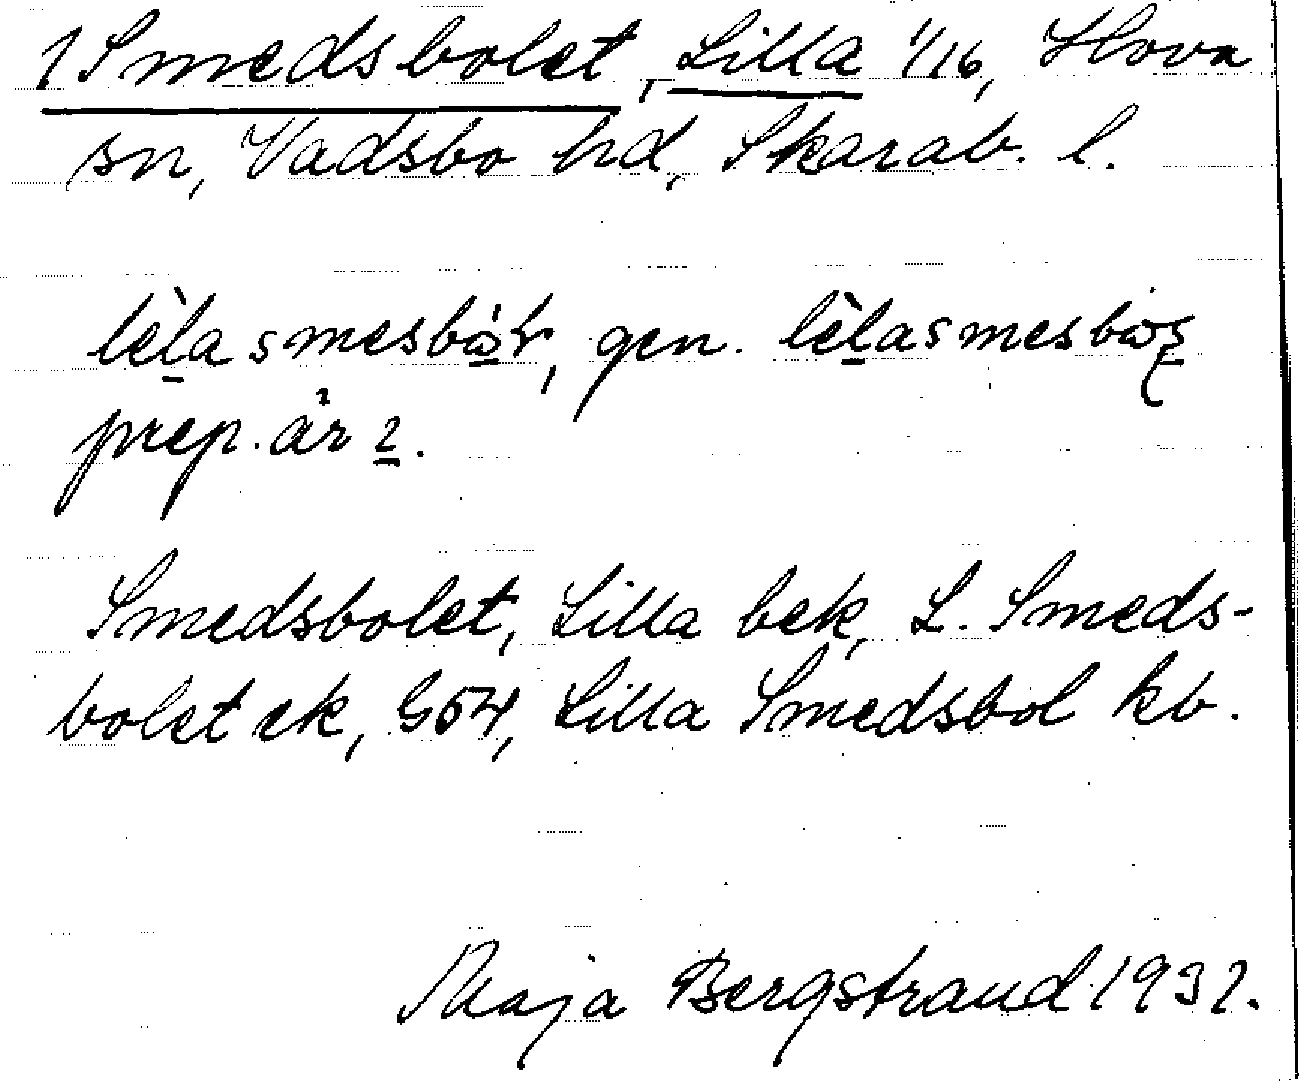 1 Smedsbolet, Lilla 1/16, Hova
sn, Vadsbo hd, Skarab. l.
gen.
prep. är 2.
Smedsbolet, Lilla bek, L. Smeds-
bolet ek, G54, Lilla Smedsbol kb.
Maja Bergstrand 1932.